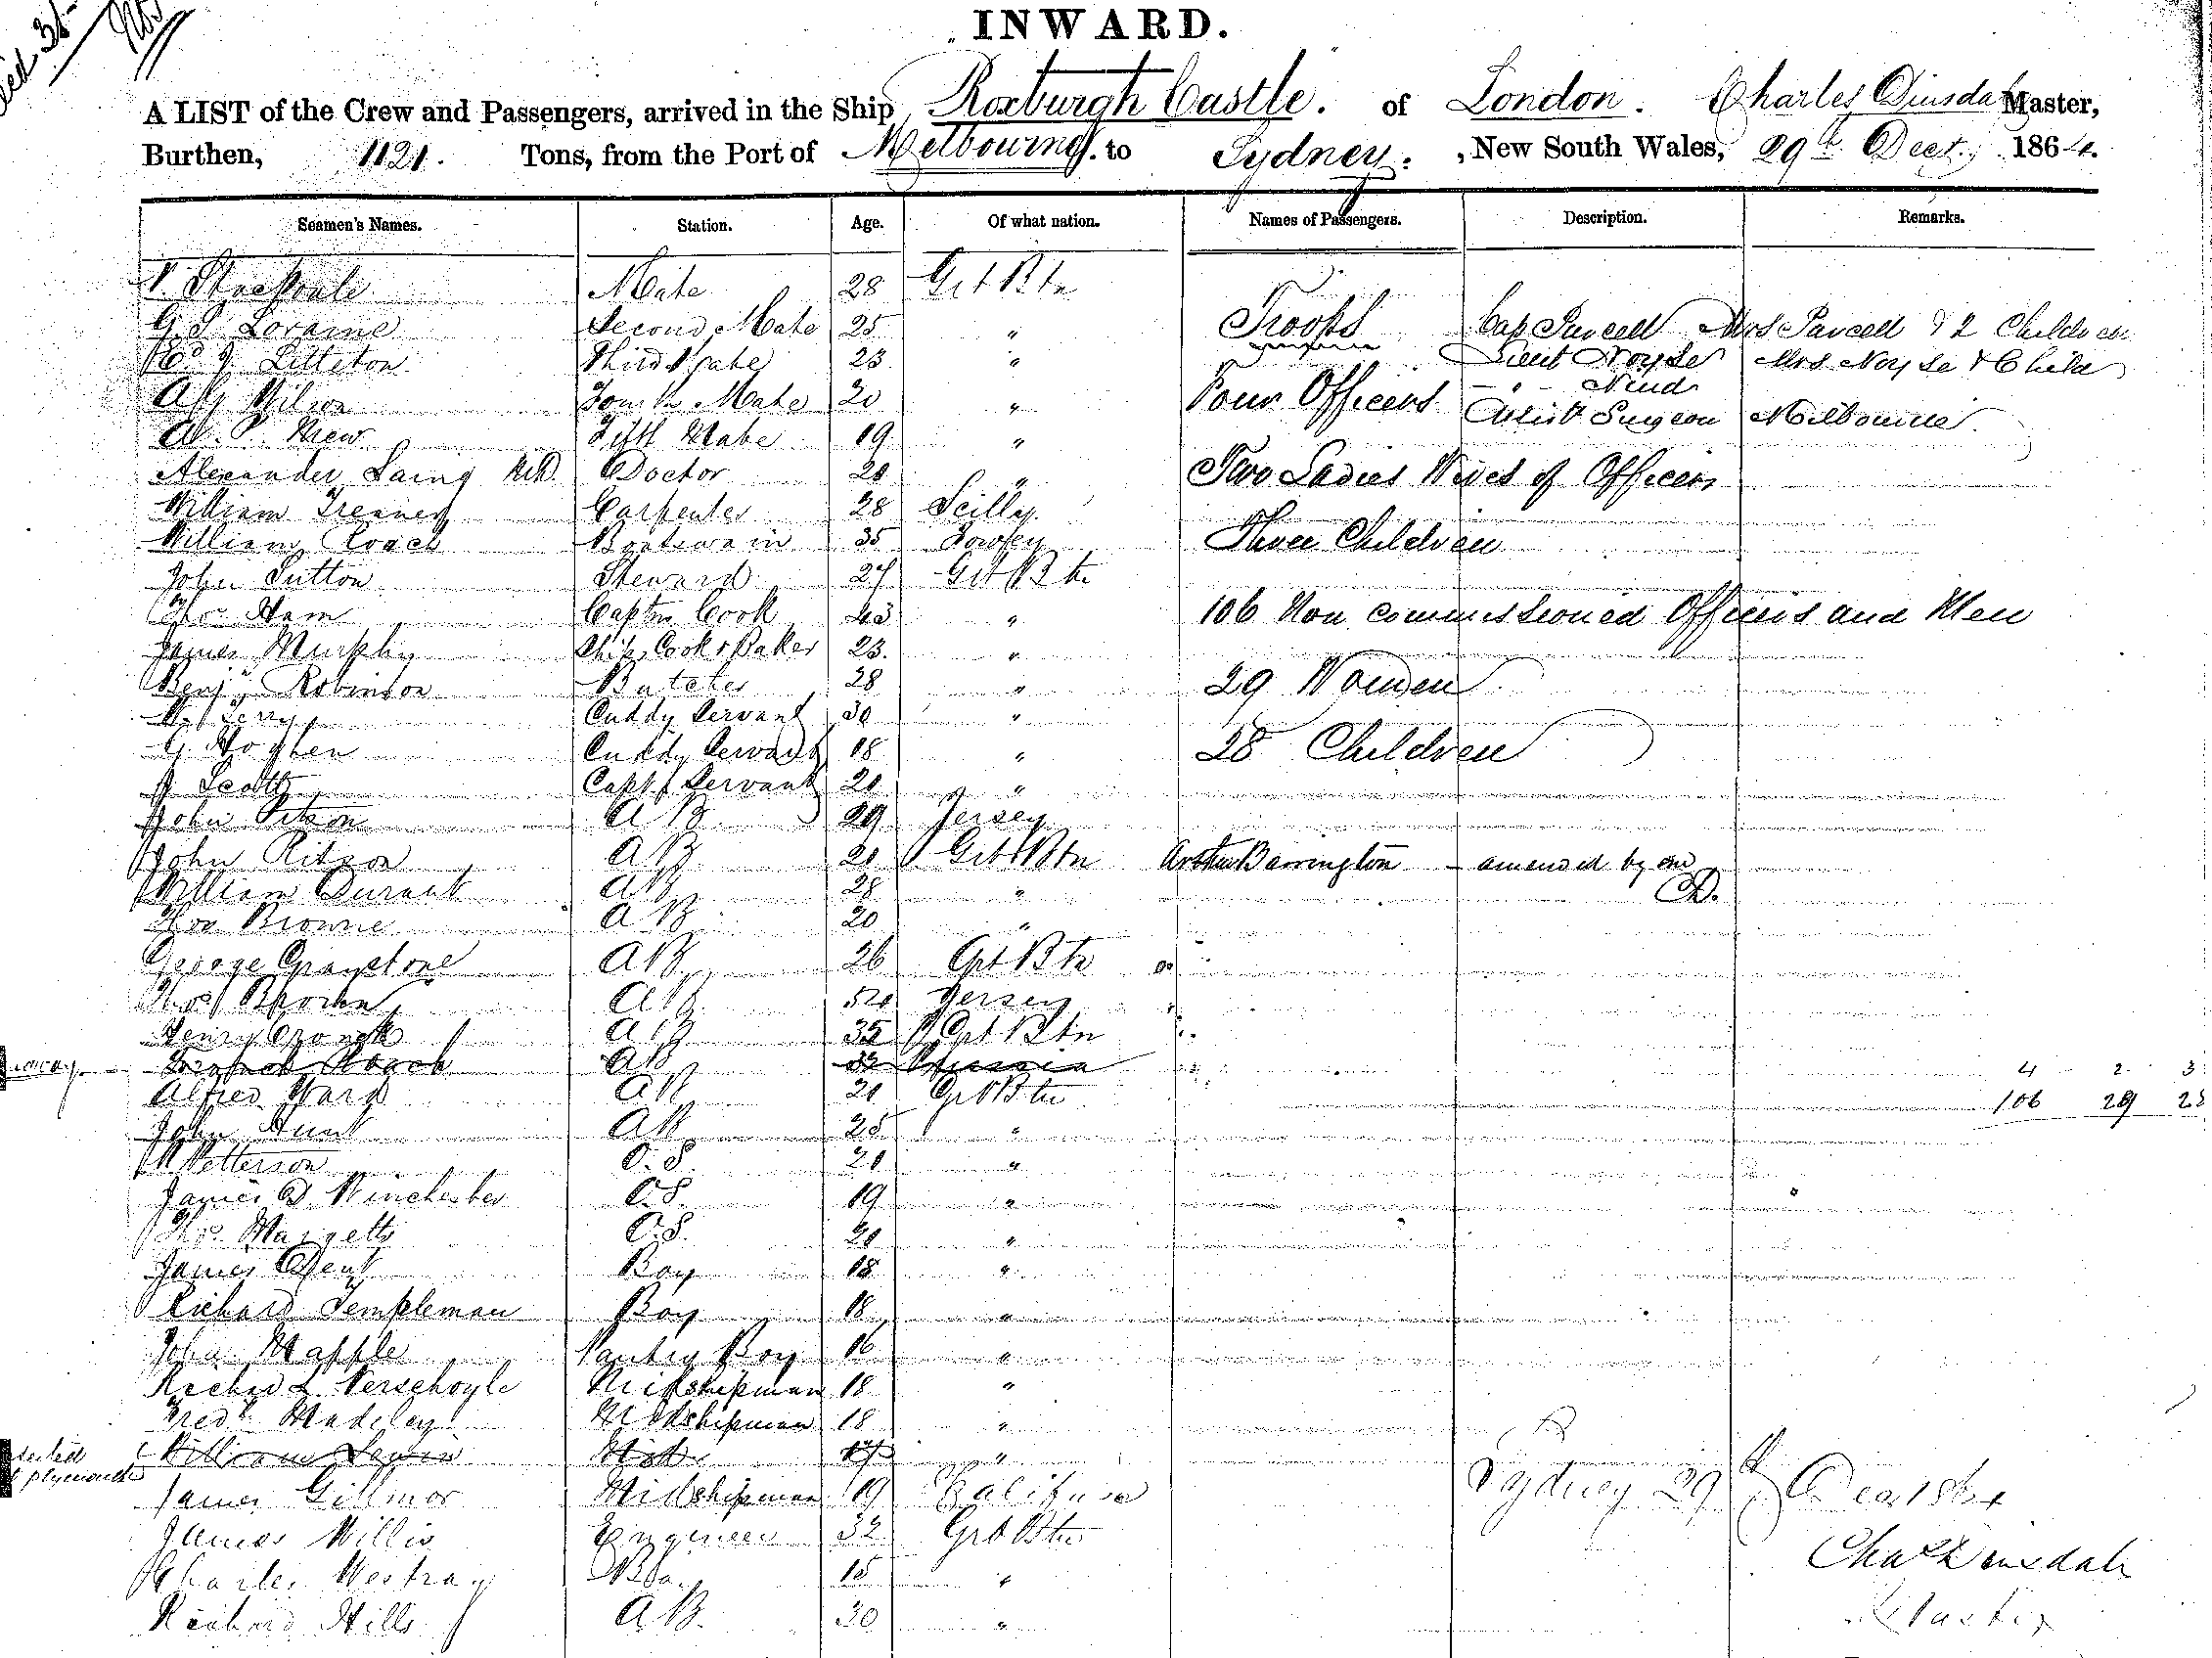 INWARD.
A LIST of the Crew and Passengers, arrived in the Ship Roxburgh Castle. of London. Charles Dinsdale Master,
Burthen, 1121. Tons, from the Port of Melbourne. to Sydney. , New South Wales, 29th Decr. 1864.
Seamen's Names. Station. Age. Of what nation. Names of Passengers. Description. Remarks.
Mate 28 Grt Btn
G S Loraine Second Mate 25 " Troops Cap Purcell Mrs Purcell & 2 Children
Littleton Third Mate 23 " Lieut Noyse Mrs Noyse & Child
Wilson Fourth Mate 20 " Four Officers - " - Nind
New Fifth Mate 19 " Assist Surgeon Melbourne
Alexander Laing M.D. Doctor 20 " Two Ladies Wives of Officers
William Carpenter 28 Scilly
William Roach Boatswain 35 Three Children
John Sutton Steward 27 Grt Btn
Thos Ham Captns Cook 43 " 106 Non commissioned Officers and Men
James Murphy Ships Cook & Baker 23. "
Benjn Robinson Butcher 28 " 29 Women
Cuddy Servant 30 "
G. Cuddy Servant 18 " 28 Children
Scott Capts Servant 20 "
John AB 29 Jersey
John Ritson AB 21 Grt Btn Arthur Barrington - amended by me
William Durant AB 28 " CD.
Thos Browne AB 20 "
George Graystone AB 26 Grt Btn
Thos Brown AB Jersey
Henry Cronk AB 35 Grt Btn
Roach AB 32 Russia 4 2 3
Alfred Ward AB 21 Grt Btn 106 29 28
John Hunt AB 25 "
Petterson O.S. 21 "
James D Winchester O.S. 19 "
Thos Margetts O.S. 20 "
James Dent Boy 18 "
Richard Templeman Boy 18 "
John Mapple Pantry Boy 16 "
Richd L Verschoyle Midshipman 18 "
Fredk Madeley Midshipman 18 "
plymouth William Lewin Mid 17 "
James Gillmor Midshipman 19 Sydney 29th Dec 1864
James Willis Engineer 32 Grt Btn
Charles Westray Boy 15 " Chas Dinsdale
Richard Hills AB. 30 " Master